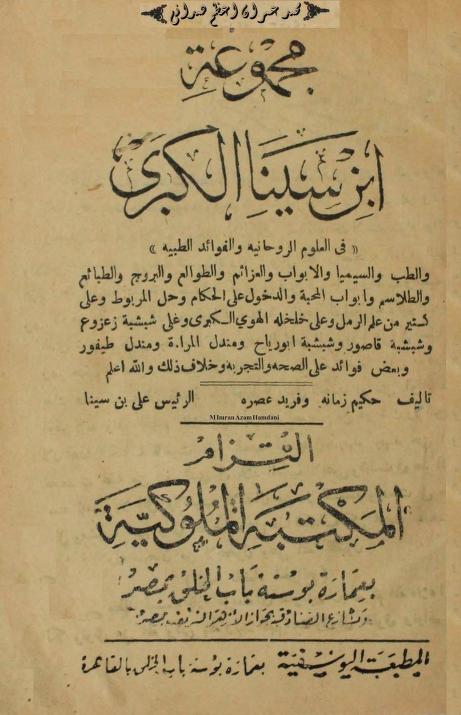 محمد عمران اعظم ھمدانی
مجموعة
ابن سينا الكبرى
« فى العلوم الروحانيه والفوائد الطبيه »
والطب والسيميا والابواب والعزائم والطوالع والبروج والطبائع
والطلاسم وابواب المحبة والدخول على الحكام وحل المربوط وعلى
كستير من علم الرمل وعلى خلخلة الهوى الكبرى وعلى شيشبة زعزوع
وشيشبة قاصور وشيشبة ابورياح ومندل المراءة ومندل طيفور
وبعض فوائد على الصحه والتجربه وخلاف ذلك والله اعلم
تاليف حكيم زمانه وفريد عصره الرئيس على بن سينا
M Imran Azam Hamdani
التزام
المكتبة الملوكية
بعمارة بوستة باب الخلق بمصر
وبشارع الصنادقية بجوار الازهر الشريف بمصر
المطبعة اليوسفية بعمارة بوستة باب الخلق بالقاهرة